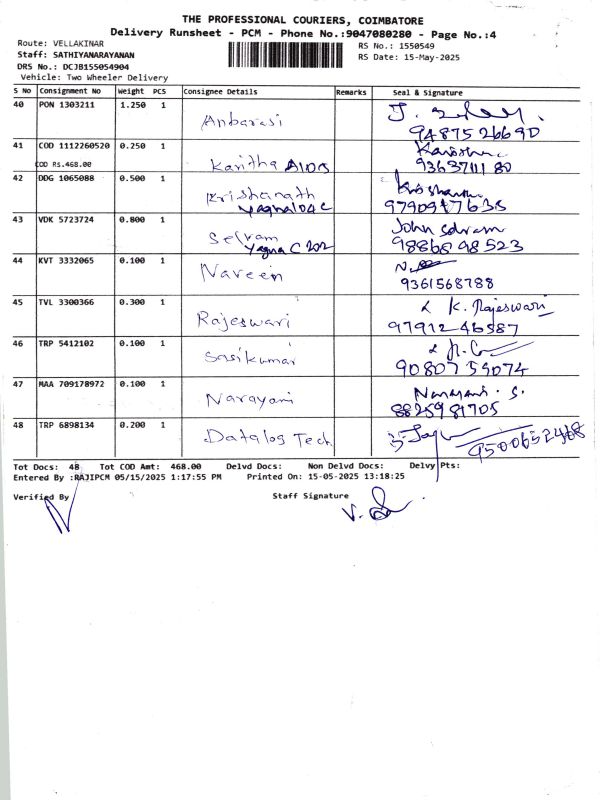 THE PROFESSIONAL COURIERS, COIMBATORE
Delivery Runsheet - PCM - Phone No.:9047080280 - Page No.:4
Route: VELLAKINAR
RS No.: 1550549
Staff: SATHIYANARAYANAN
RS Date: 15-May-2025
DRS No.: DCJB155054904
Vehicle: Two Wheeler Delivery
S No Consignment No Weight PCS Consignee Details Remarks Seal & Signature
40 PON 1303211 1.250 1 Anbarasi
41 COD 1112260520 0.250 1
COD RS.468.00 Kavitha
42 DDG 1065088 0.500 1 Krishanath
9790977635
43 VDK 5723724 0.800 1 Selvam John Selvam
Yagna C 202 9886898523
44 KVT 3332065 0.100 1 Naveen
9361568788
45 TVL 3300366 0.300 1 Rajeswari K. Rajeswari
9791246587
46 TRP 5412102 0.100 1 Sasikumar
9080759074
47 MAA 709178972 0.100 1 Narayani Narayani. S.
8825981705
48 TRP 6898134 0.200 1 Datalog Tech 9500652468
Tot Docs: 48 Tot COD Amt: 468.00 Delvd Docs: Non Delvd Docs: Delvy Pts:
Entered By :RAJIPCM 05/15/2025 1:17:55 PM Printed On: 15-05-2025 13:18:25
Verified By Staff Signature